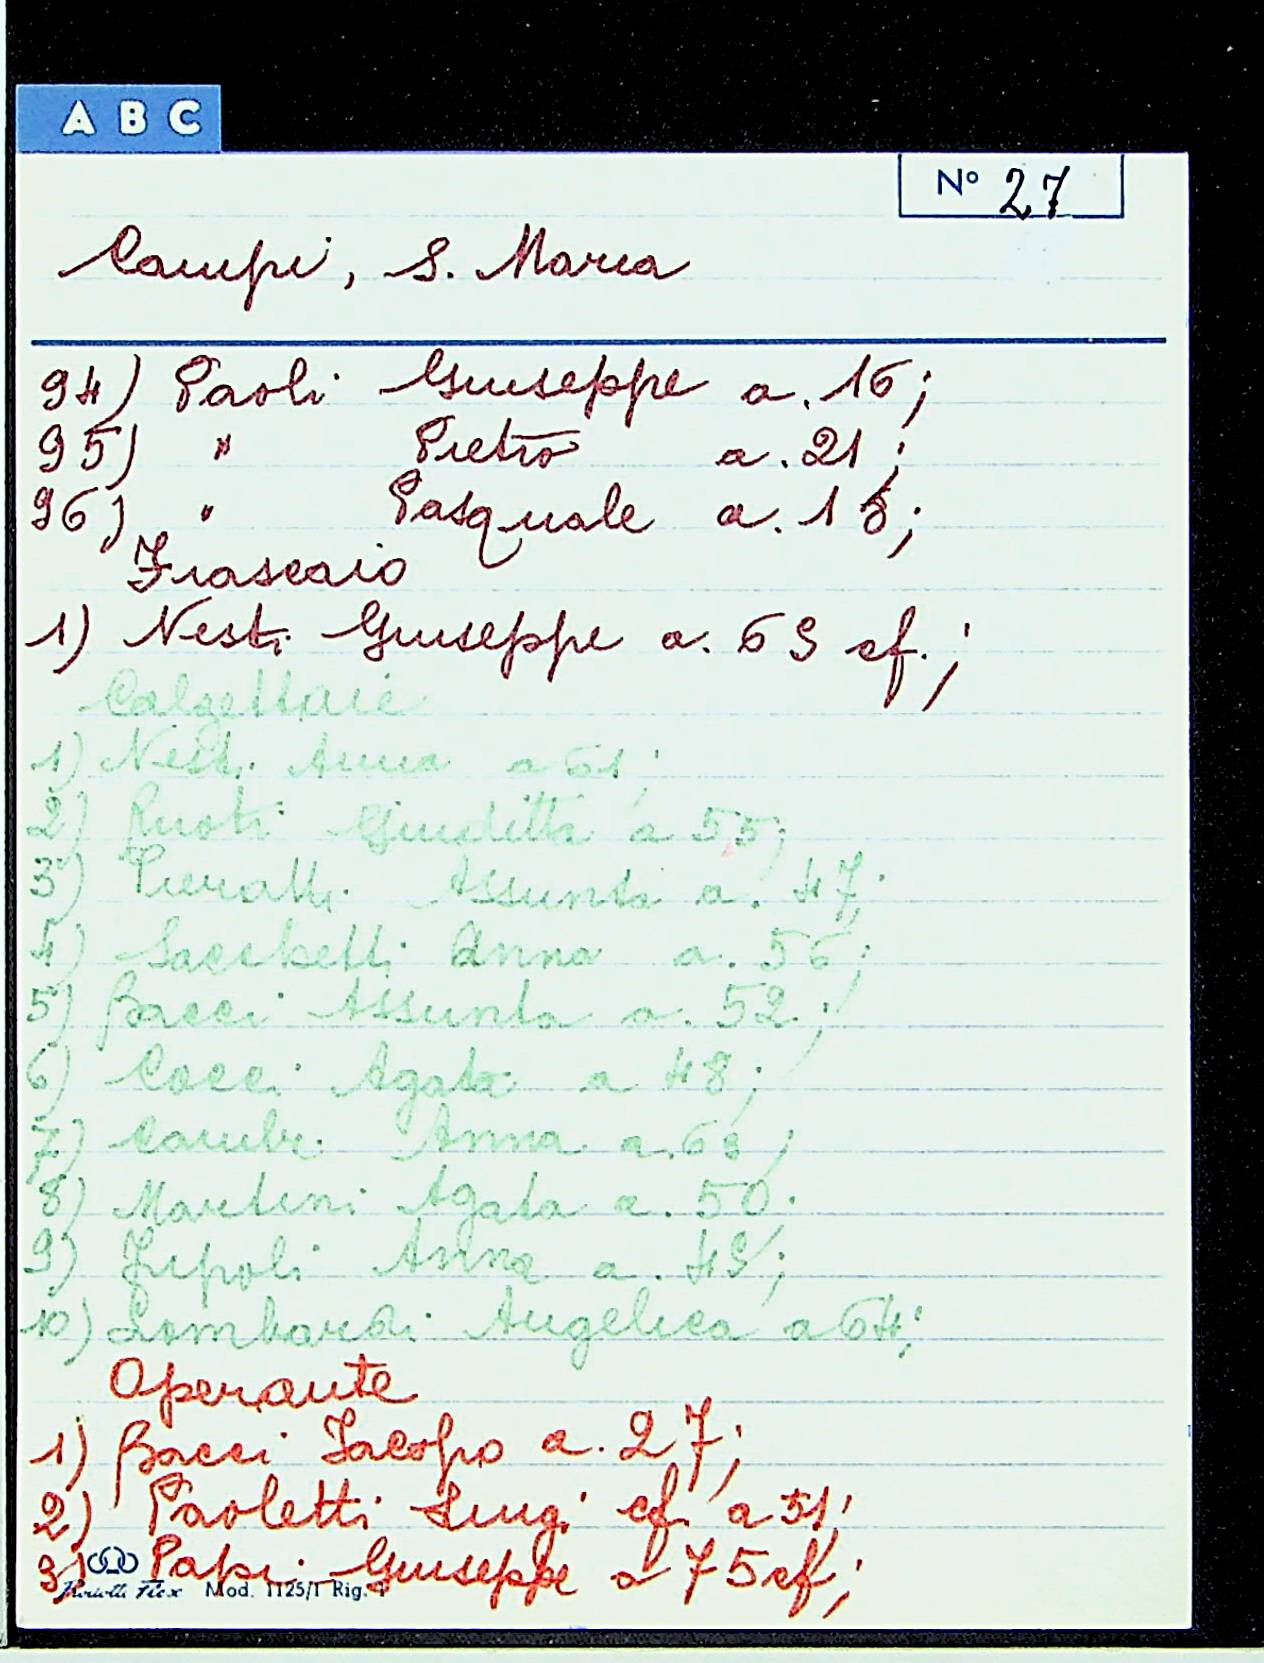 A B C
Nº 27
Campi, S. Maria
94) Paoli Giuseppe a. 16;
95) " Pietro a. 21;
96) " Pasquale a. 15;
Frascaio
1) Nesti Giuseppe a. 69 cf.;
Calzettaie
1) Nesti Anna a 61;
2) Ruoti Giuditta a 55;
3) Pieratti Assunta a. 47;
4) Sacchetti Anna a. 56;
5) Bacci Assunta a. 52.;
6) Cocci Agata a 48;
7) Cambi Anna a. 69;
8) Martini Agata a. 50.
9) Anna a. 49;
10) Lombardi Angelica a 64;
Operante
1) Bacci Jacopo a. 27;
2) Paoletti Luigi cf. a 51;
3) Papi Giuseppe a 75 cf;
Mod. 1125/1 Rig. 1